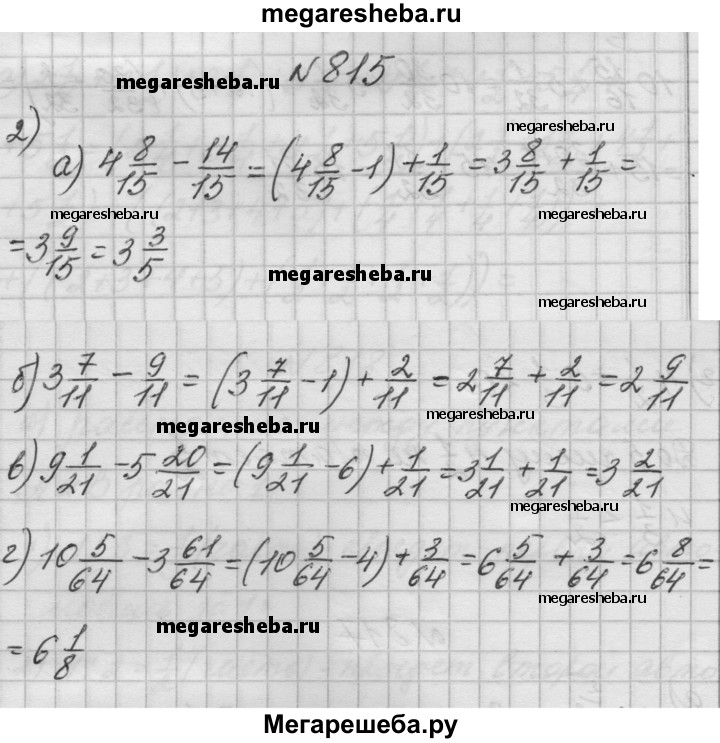 megaresheba.ru
№815
megaresheba.ru
2)
megaresheba.ru
а) 4 8/15 - 14/15 = (4 8/15 - 1) + 1/15 = 3 8/15 + 1/15 =
megaresheba.ru megaresheba.ru
= 3 9/15 = 3 3/5
megaresheba.ru
megaresheba.ru
б) 3 7/11 - 9/11 = (3 7/11 - 1) + 2/11 = 2 7/11 + 2/11 = 2 9/11
megaresheba.ru megaresheba.ru
в) 9 1/21 - 5 20/21 = (9 1/21 - 6) + 1/21 = 3 1/21 + 1/21 = 3 2/21
megaresheba.ru
г) 10 5/64 - 3 61/64 = (10 5/64 - 4) + 3/64 = 6 5/64 + 3/64 = 6 8/64 =
megaresheba.ru
megaresheba.ru
= 6 1/8
Мегарешеба.ру